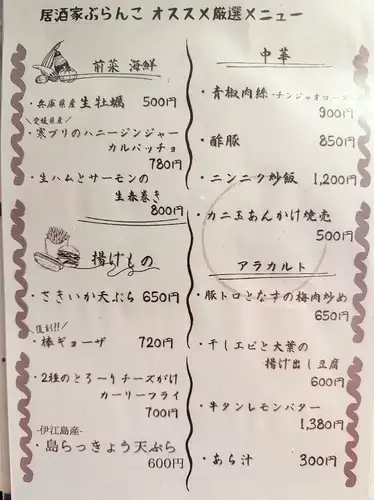 居酒家ぶらんこ オススメ厳選メニュー
前菜 海鮮
・兵庫県産生牡蠣 500円
＼愛媛県産／
・寒ブリのハニージンジャー
カルパッチョ
780円
・生ハムとサーモンの
生春巻き
800円
揚げもの
・さきいか天ぷら 650円
＼復刻!!／
・棒ギョーザ 720円
・2種のとろ〜りチーズがけ
カーリーフライ
700円
-伊江島産-
・島らっきょう天ぷら
600円
中華
・青椒肉絲-チンジャオロース-
900円
・酢豚 850円
・ニンニク炒飯 1,200円
・カニ玉あんかけ焼売
500円
アラカルト
・豚トロとなすの梅肉炒め
650円
・干しエビと大葉の
揚げ出し豆腐
600円
・牛タンレモンバター
1,380円
・あら汁 300円